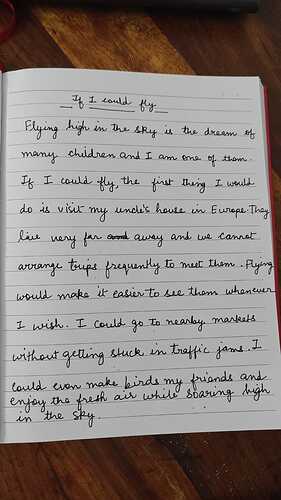 If I could fly
Flying high in the sky is the dream of
many children and I am one of them.
If I could fly, the first thing I would
do is visit my uncle's house in Europe. They
live very far away and we cannot
arrange trips frequently to meet them. Flying
would make it easier to see them whenever
I wish. I could go to nearby markets
without getting stuck in traffic jams. I
could even make birds my friends and
enjoy the fresh air while soaring high
in the sky.